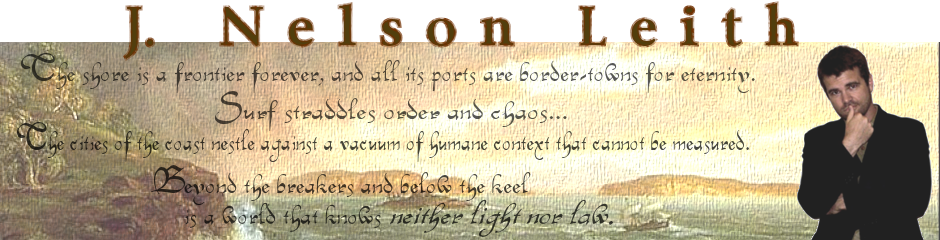 J. Nelson Leith
The shore is a frontier forever, and all its ports are border-towns for eternity.
Surf straddles order and chaos...
The cities of the coast nestle against a vacuum of humane context that cannot be measured.
Beyond the breakers and below the keel
is a world that knows neither light nor law.